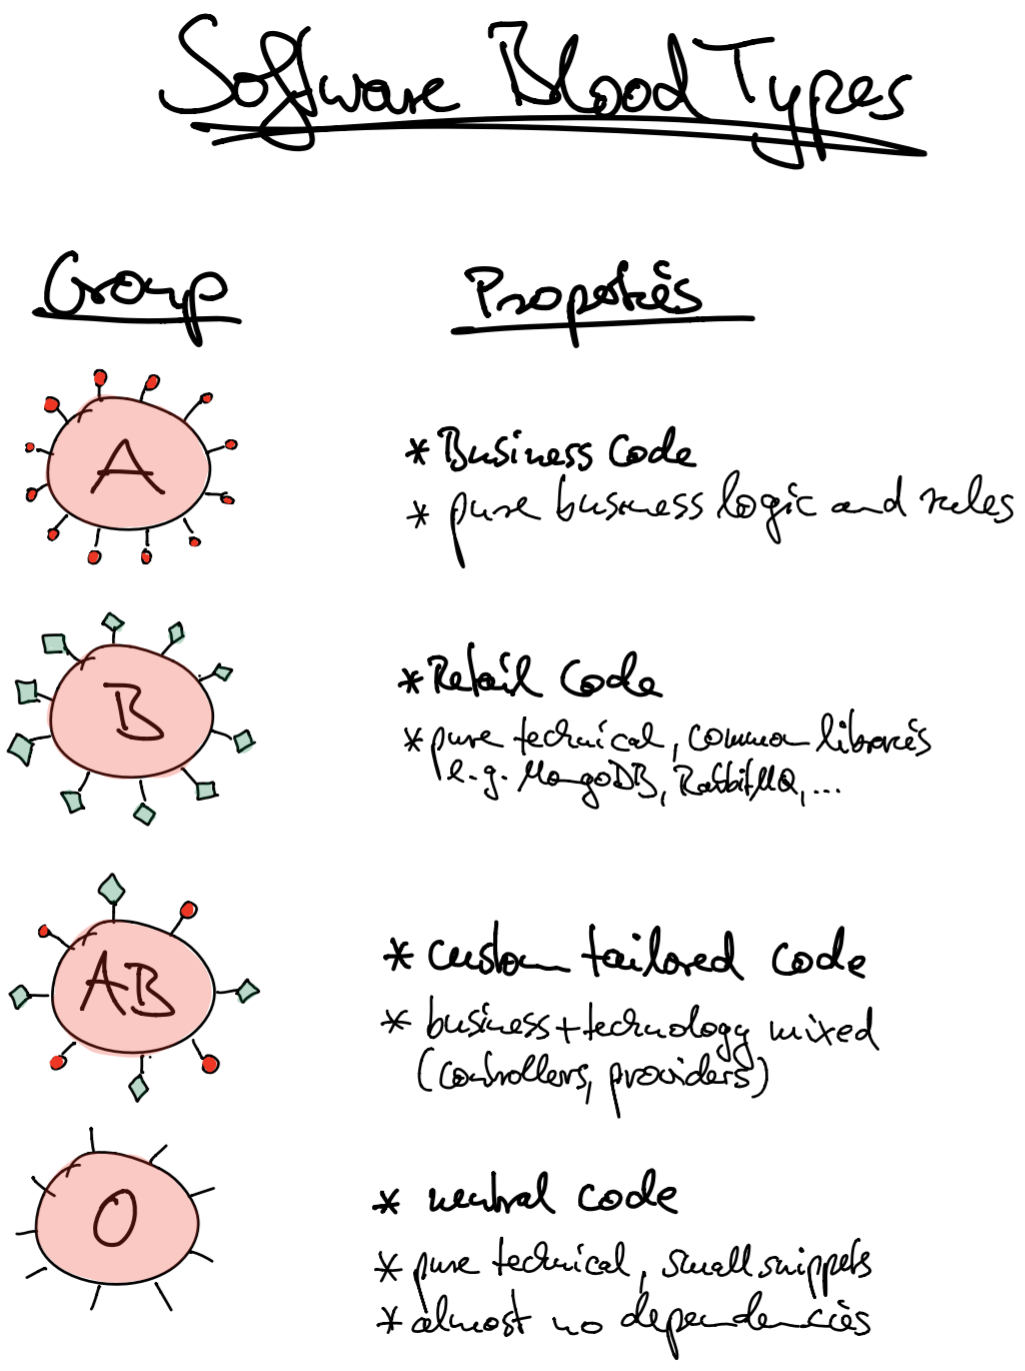 Software Blood Types
Group
Properties
A
* Business Code
* pure business logic and rules
B
* Retail Code
* pure technical, common libraries
e.g. MongoDB, RabbitMQ, ...
AB
* custom tailored code
* business + technology mixed
(controllers, providers)
O
* neutral code
* pure technical, small snippets
* almost no dependencies